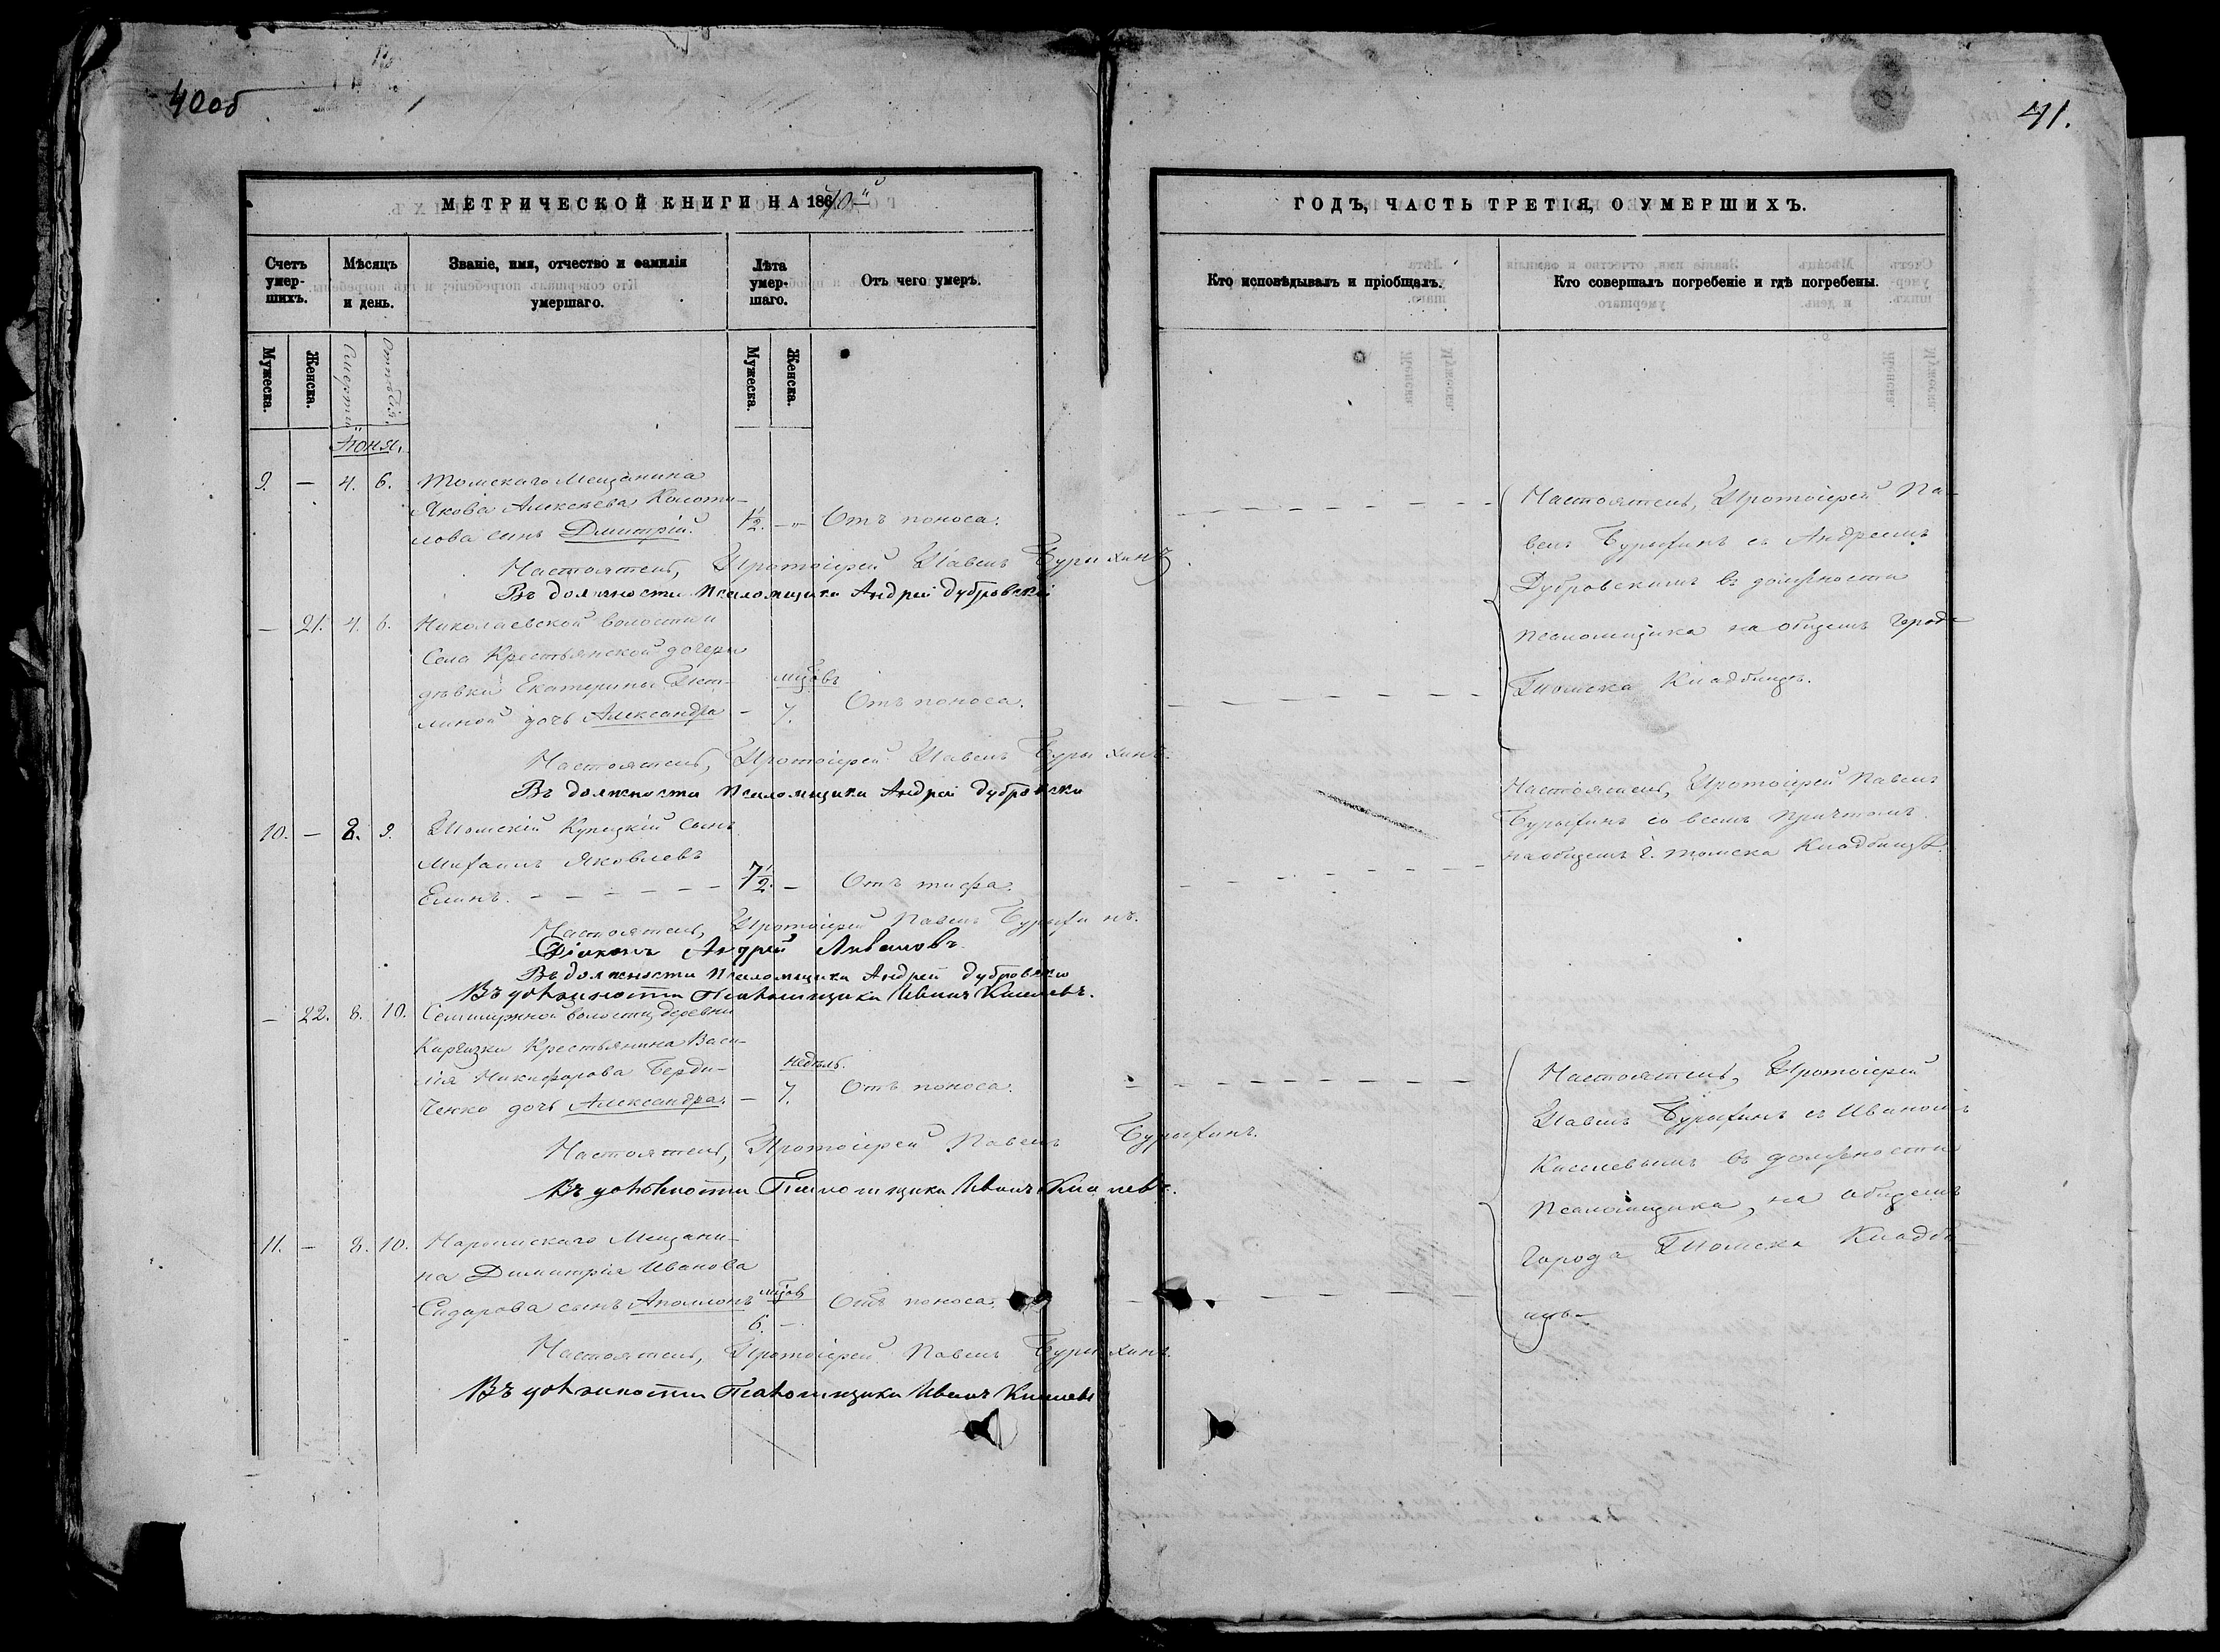 40 об
41.
МЕТРИЧЕСКОЙ КНИГИ НА 1870й
ГОДЪ, ЧАСТЬ ТРЕТІЯ, О УМЕРШИХЪ.
Счетъ умер-шихъ.
Мѣсяцъ и день.
Званіе, имя, отчество и фамилія умершаго.
Лѣта умер-шаго.
Отъ чего умеръ.
Кто исповѣдывалъ и пріобщалъ.
Кто совершалъ погребеніе и гдѣ погребены.
Мужеска.
Женска.
Смерти
Отпѣтія.
Мужеска.
Женска.
Іюня.
9. — 4. 6. Томскаго Мещанина
Якова Алексѣева Колоти-
лова сынъ Дмитрій. 1½. —„— Отъ поноса.
Настоятель, Протоіерей Павелъ Бурыхинъ
Въ должности Псаломщика Андрей Дубровскій
Настоятель, Протоіерей Па-
велъ Бурыхинъ съ Андреемъ
Дубровскимъ въ должности
псаломщика на общемъ города
Томска Кладбищѣ.
— 21. 4. 6. Николаевской волости и
Села Крестьянской дочери
дѣвки Екатерины
линой дочь Александра — мѣсцовъ 7. Отъ поноса.
Настоятель, Протоіерей Павелъ Бурыхинъ.
Въ должности Псаломщика Андрей Дубровски
10. — 8. 9. Томскій Купецкій Сынъ
Михаилъ Яковлевъ
Елинъ. — — — — — 7½. — Отъ тифа.
Настоятель, Протоіерей Павелъ Бурыхинъ.
Діаконъ Андрей
Въ должности Псаломщика Андрей Дубровско
Въ должности Псаломщика Иванъ Киселевъ.
Настоятель, Протоіерей Павелъ
Бурыхинъ со всемъ Причтомъ
на общемъ г. Томска Кладбищѣ.
— 22. 8. 10. Семилужной волости, деревни
Киргизки Крестьянина Васи-
лія Никифорова Берди-
ченко дочь Александра. — недѣль. 7. Отъ поноса.
Настоятель, Протоіерей Павелъ Бурыхинъ.
Въ должности Псаломщика Иванъ Киселевъ.
Настоятель, Протоіерей
Павелъ Бурыхинъ съ Иваномъ
Киселевымъ въ должности
Псаломщика, на общемъ
города Томска Кладби-
щѣ.
11. — 8. 10. Нарымскаго Мещани-
на Димитрія Иванова
Сидорова сынъ Аполлонъ мѣсцовъ 6. — Отъ поноса.
Настоятель, Протоіерей Павелъ Бурыхинъ.
Въ должности Псаломщика Иванъ Киселевъ